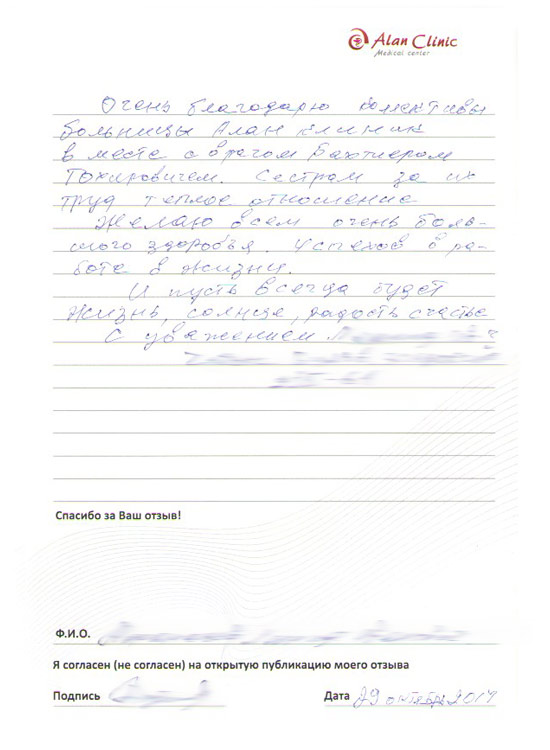 Alan Clinic
Medical center
Очень благодарю коллективы
больницы Алан клиник
в месте с врачом Бахтиером
Тохировичем. Сестрам за их
труд теплое отношение
Желаю всем очень боль-
шого здоровья. Успехов в ра-
боте в жизни.
И пусть всегда будет
жизнь, солнце, радость счастье
С уважением
Спасибо за Ваш отзыв!
Ф.И.О.
Я согласен (не согласен) на открытую публикацию моего отзыва
Подпись Дата 29 октября